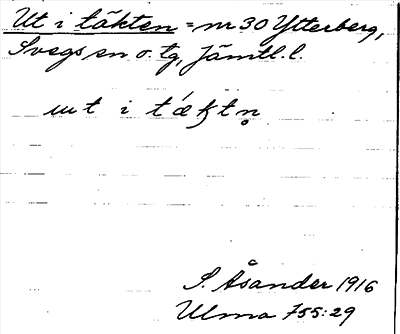 Ut i täkten = nr 30 Ytterberg,
Svegs sn o. tg, Jämtl. l.
ɯt i tǽꞣtn̥
S. Åsander 1916
Ulma 755:29